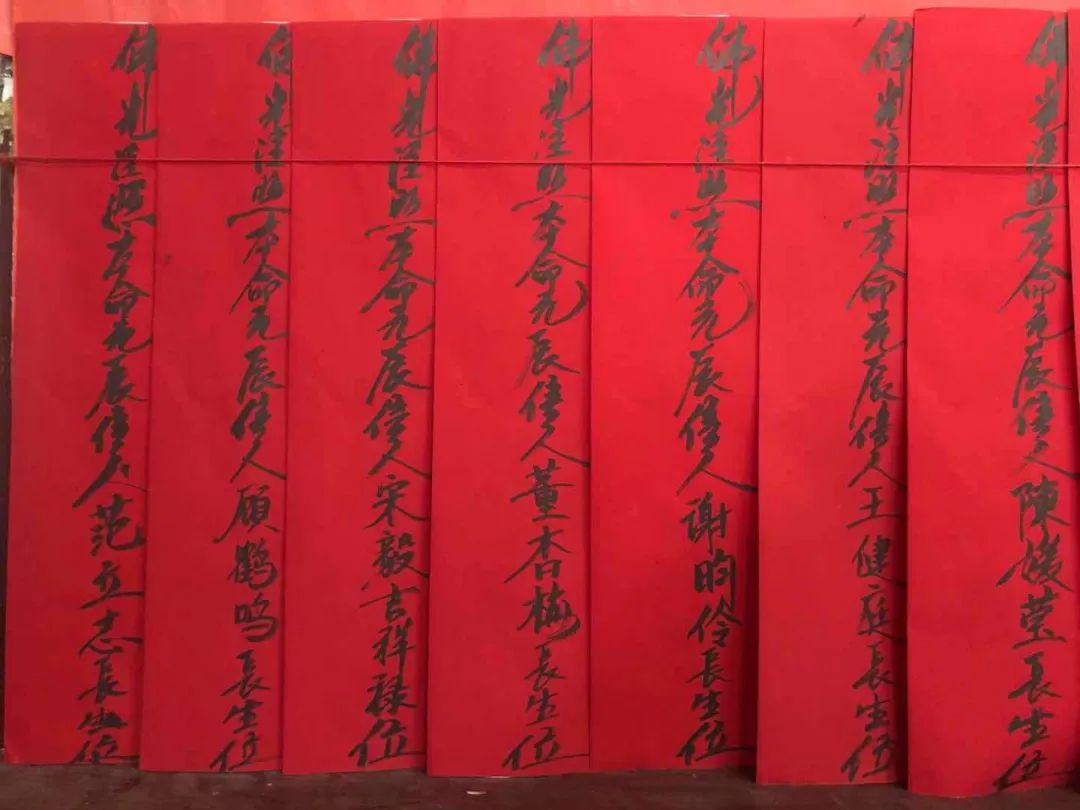 佛光注照本命元辰信人陳媛莹長生位
佛光注照本命元辰信人王健庭長生位
佛光注照本命元辰信人谢昀伶長生位
佛光注照本命元辰信人董杏梅長生位
佛光注照本命元辰信人宋毅吉祥禄位
佛光注照本命元辰信人顾鹤鸣長生位
佛光注照本命元辰信人范立志長生位